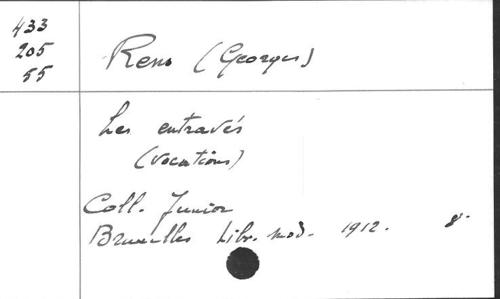 433
205
55
Reno (Georges)
Les entravés
(vocations)
Coll. Junior
Bruxelles Libr. mod. 1912. 8°